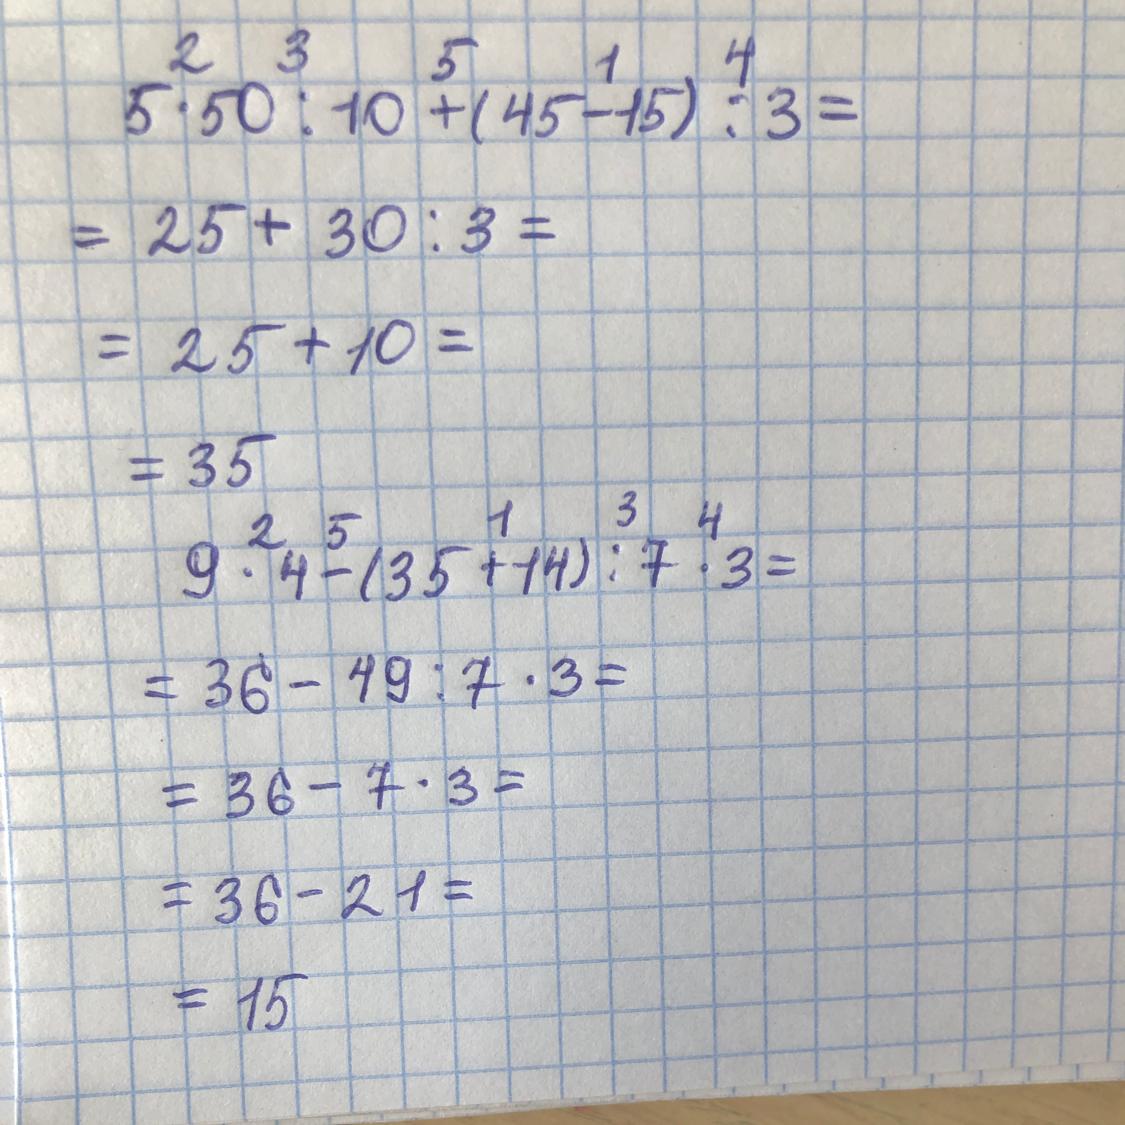 2 3 5 1 4
5·50:10+(45-15):3=
=25+30:3=
=25+10=
=35
2 5 1 3 4
9·4-(35+14):7·3=
=36-49:7·3=
=36-7·3=
=36-21=
=15